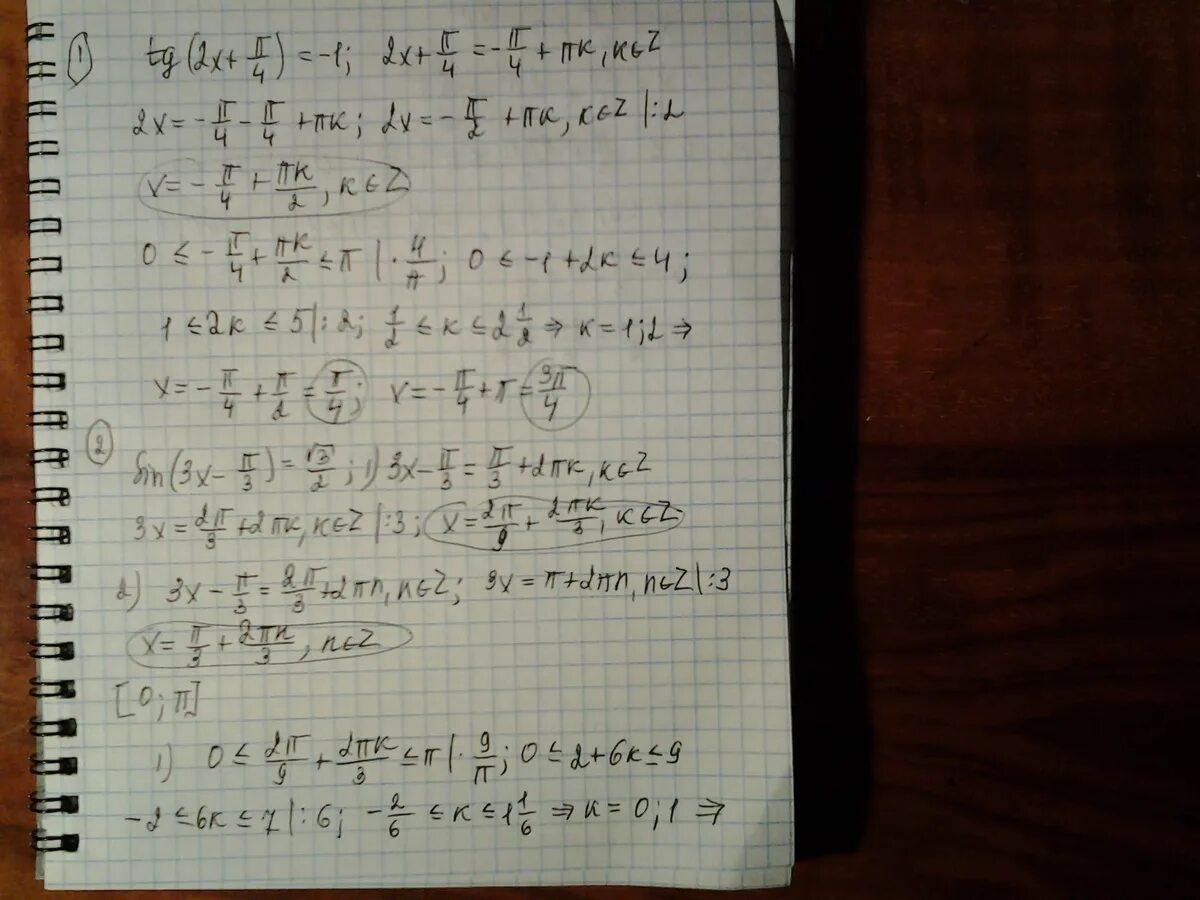 ① tg(2x+π/4)=-1; 2x+π/4=-π/4+πк, к∈Z
2x=-π/4-π/4+πк; 2x=-π/2+πк, к∈Z |:2
x=-π/4+πк/2, к∈Z
0≤-π/4+πк/2≤π |·4/π; 0≤-1+2к≤4;
1≤2к≤5|:2; 1/2≤к≤2 1/2 ⇒ к=1;2 ⇒
x=-π/4+π/2=π/4; x=-π/4+π=3π/4
② sin(3x-π/3)=√3/2; 1) 3x-π/3=π/3+2πк, к∈Z
3x=2π/3+2πк, к∈Z |:3; x=2π/9+2πк/3, к∈Z
2) 3x-π/3=2π/3+2πn, n∈Z; 3x=π+2πn, n∈Z |:3
x=π/3+2πn/3, n∈Z
[0;π]
1) 0≤2π/9+2πк/3≤π |·9/π; 0≤2+6к≤9
-2≤6к≤7|:6; -2/6≤к≤1 1/6 ⇒ к=0;1 ⇒